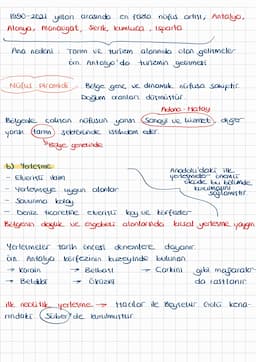 1990-2021 yılları arasında en fazla nüfus artışı, Antalya,
Alanya, Manavgat, Serik, Kumluca, Isparta
Ana nedeni: Tarım ve turizm alanında olan gelişmeler
ön. Antalya'da turizmin gelişmesi
Nüfus Piramidi: Bölge genç ve dinamik nüfusa sahiptir.
Doğum oranları düşmüştür.
Adana-Hatay
Bölgede çalışan nüfusun yarısı Sanayi ve hizmet, diğer
yarısı tarım sektöründe istihdam eder.
Bölge genelinde
b) Yerleşme
- Elverişli iklim
- Yerleşmeye uygun alanlar
- Savunma kolay
- Deniz ticaretine elverişli koy ve körfezler
Anadolu'daki ilk
yerleşmeler önemli
ölçüde bu bölümde
kurulmasını
sağlamıştır.
Bölgenin dağlık ve engebeli alanlarında kırsal yerleşme yaygın
Yerleşmeler tarih öncesi dönemlere dayanır.
ön. Antalya körfezinin kuzeyinde bulunan
→ Karain → Belbaşı → Çarkini gibi mağaralar-
→ Beldibi → Öküzini da rastlanır
ilk neolitik yerleşme → Hacılar ile Beyşehir Gölü kena-
rındaki Suberde kurulmuştur.